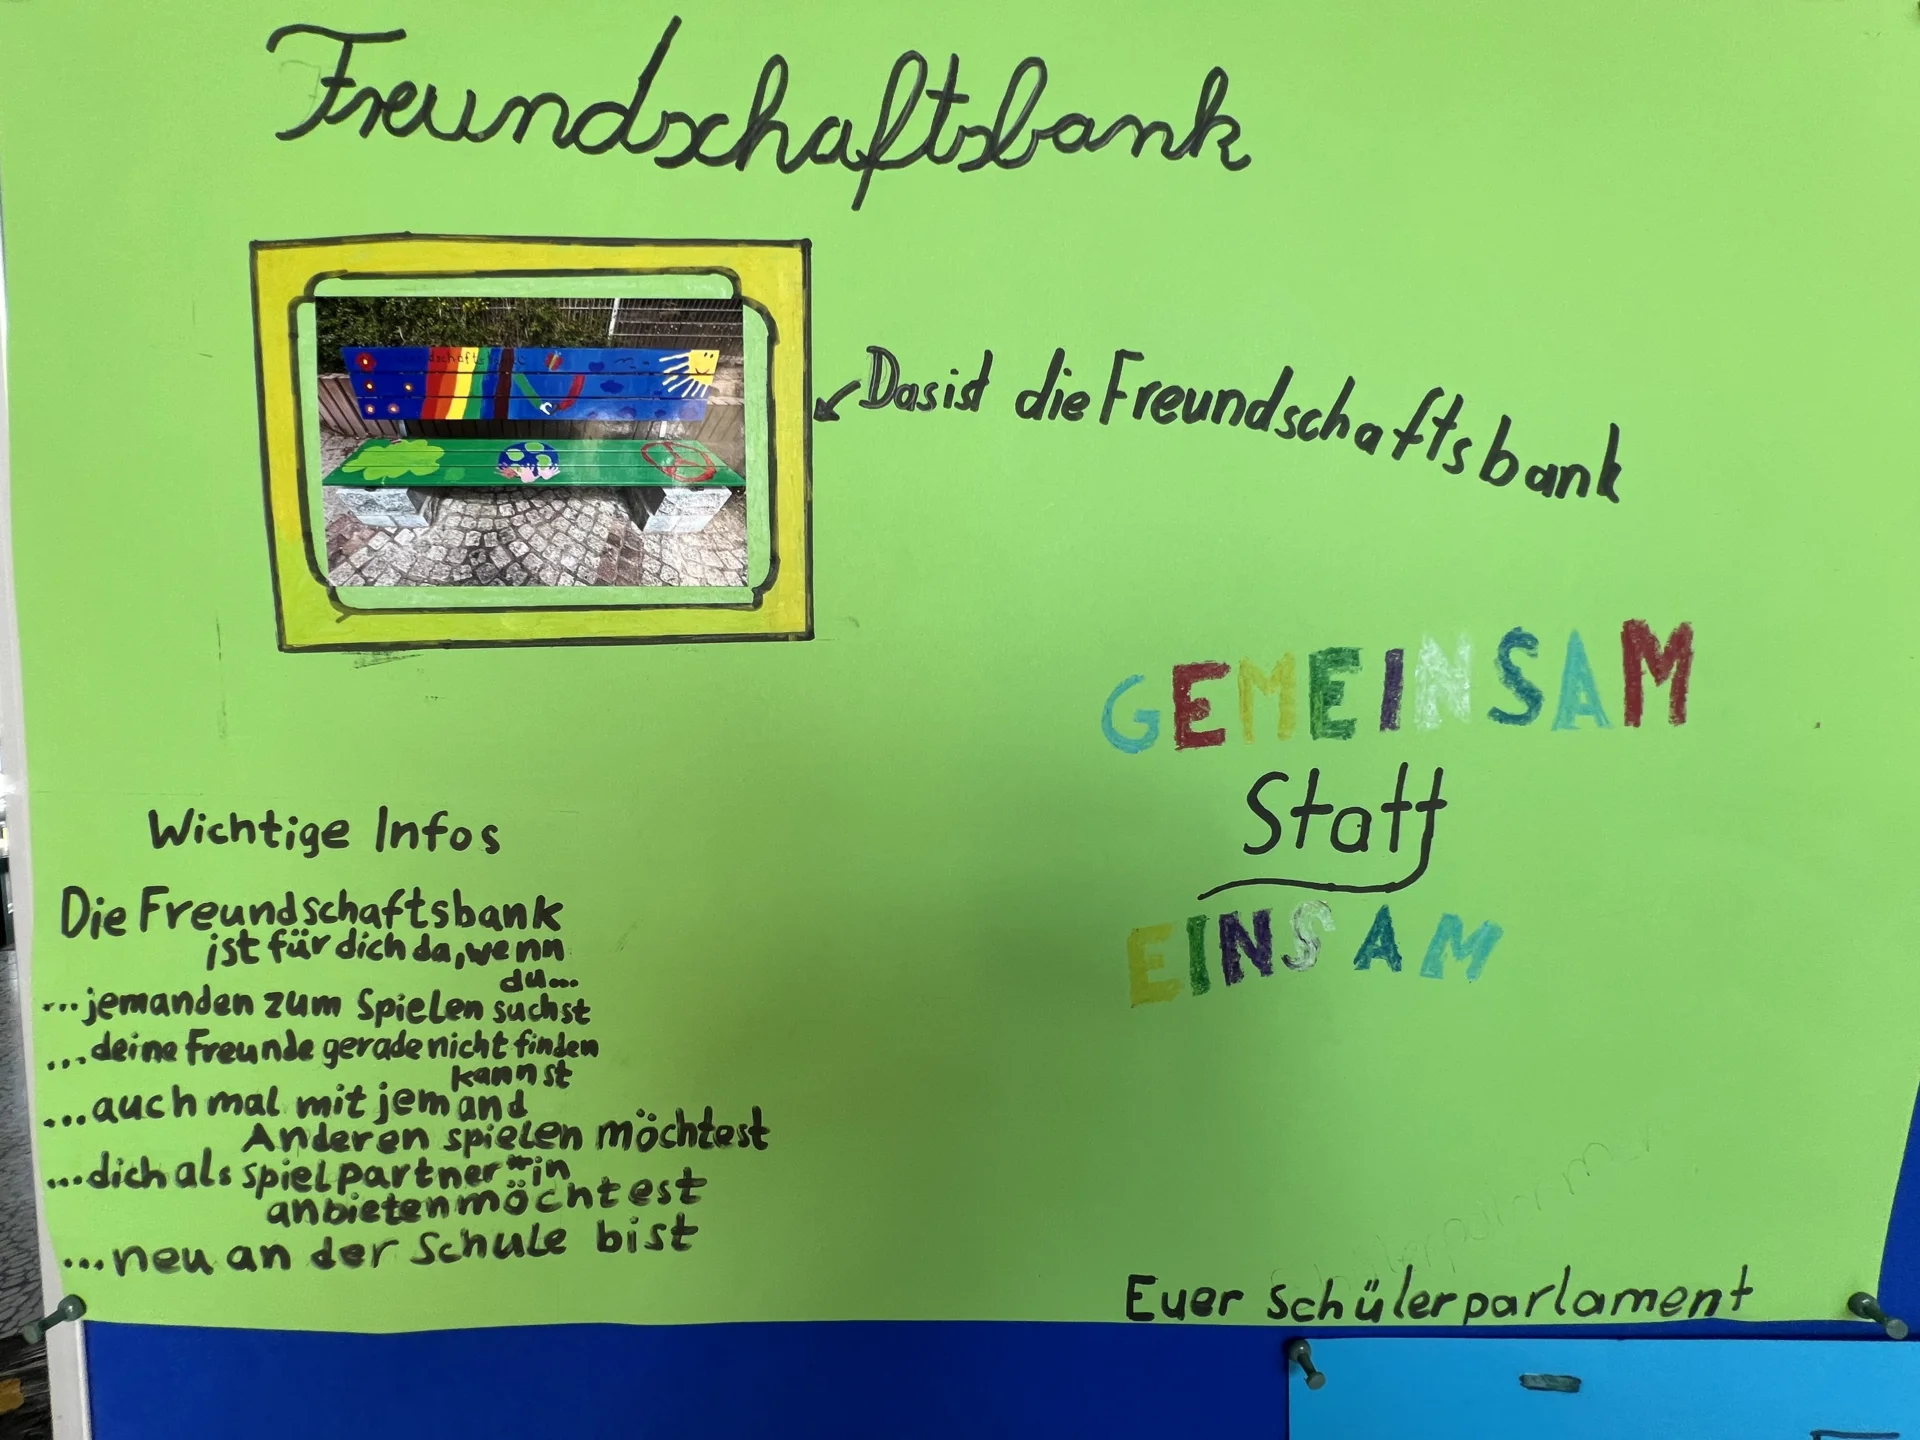 Freundschaftsbank
Das ist die Freundschaftsbank
GEMEINSAM
Statt
EINSAM
Wichtige Infos
Die Freundschaftsbank
ist für dich da, wenn
du...
...jemanden zum Spielen suchst
...deine Freunde gerade nicht finden
kannst
...auch mal mit jemand
Anderen spielen möchtest
...dich als spielpartner*in
anbieten möchtest
...neu an der Schule bist
Euer Schülerparlament